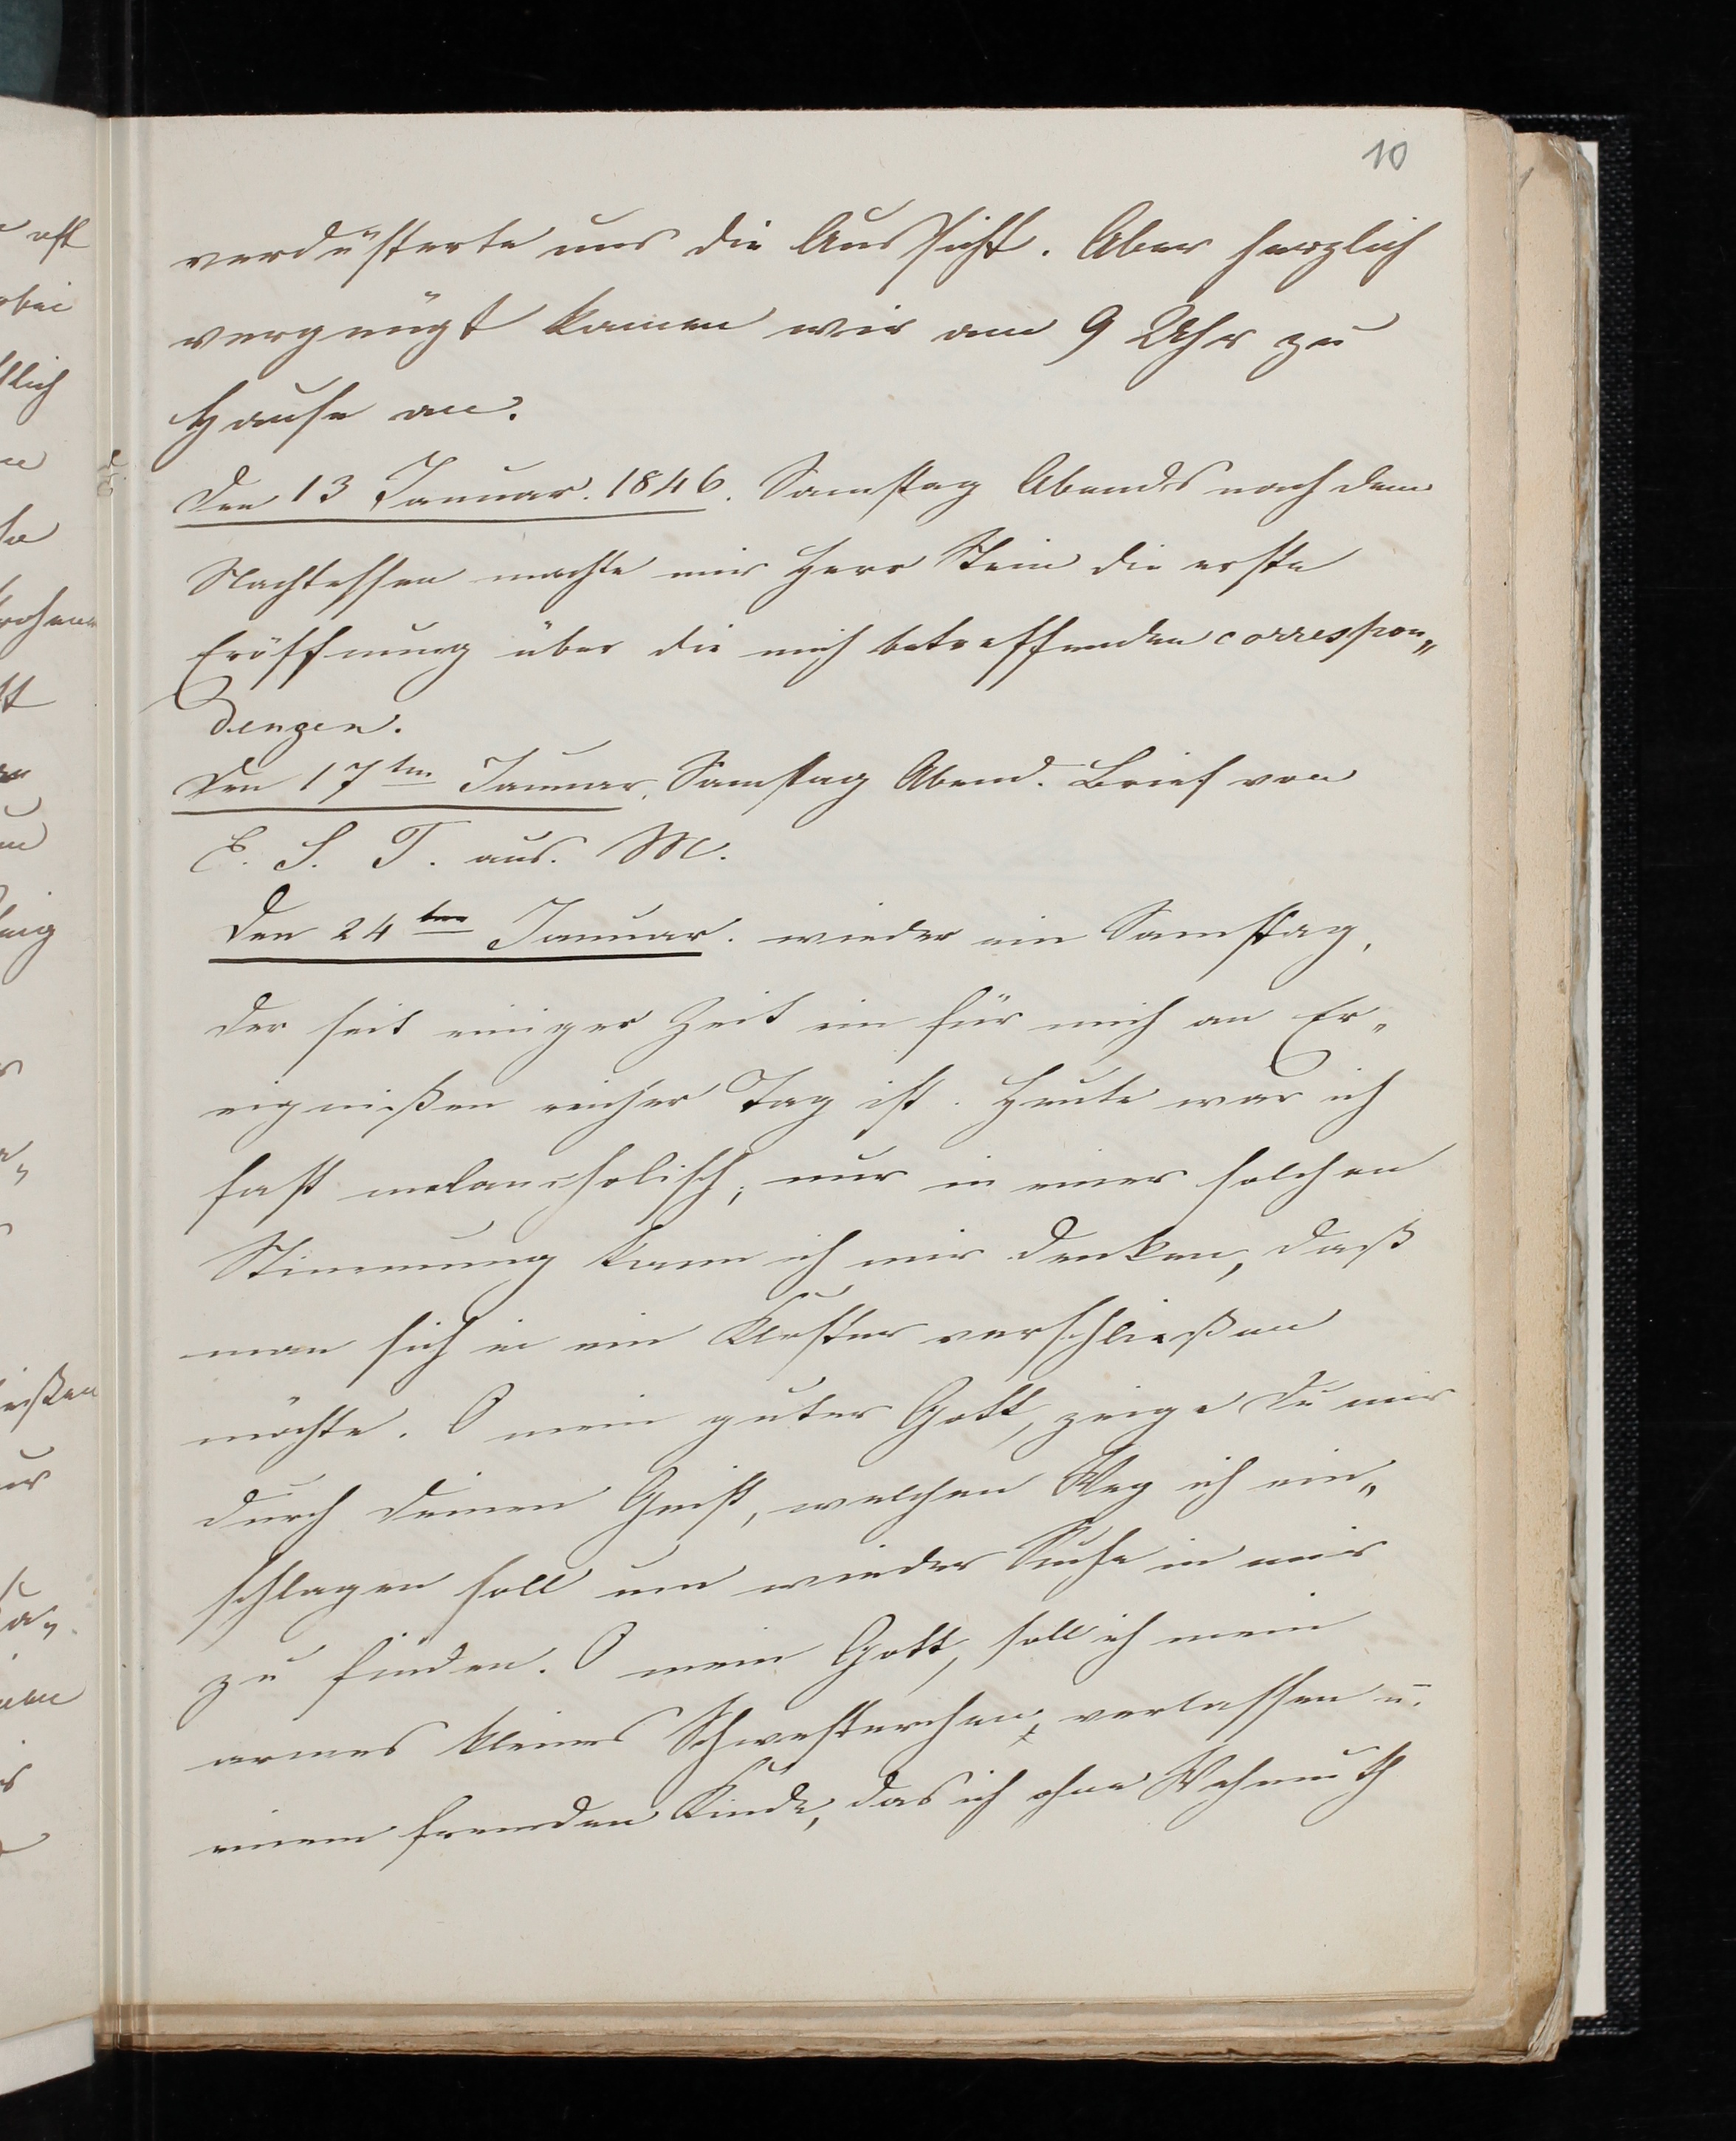 10
verdüsterte uns die Aussicht. Aber herzlich
vergnügt kamen wir um 9 Uhr zu
Hause an.
Den 13 Januar. 1846. Samstag Abends nach dem
Nachtessen machte mir Herr Stein die erste
Eröffnung über die mich betreffenden correspon„
denzen.
Den 17ten Januar. Samstag Abend. Brief von
E. S. T. aus. M.
Den 24ten Januar. wieder ein Samstag,
der seit einiger Zeit ein für mich an Er„
eignißen reicher Tag ist. Heute war ich
fast melancholisch; nur in einer solchen
Stimmung kann ich mir denken, daß
man sich in ein Kloster verschließen
möchte. O mein guter Gott, zeige Du mir
durch deinen Geist, welchen Weg ich ein„
schlagen soll um wieder Ruhe in mir
zu finden. O mein Gott, soll ich mein
armes kleines Schwesterchen, verlassen u.
einem fremden Kinde, das ich ohne Wehmuth